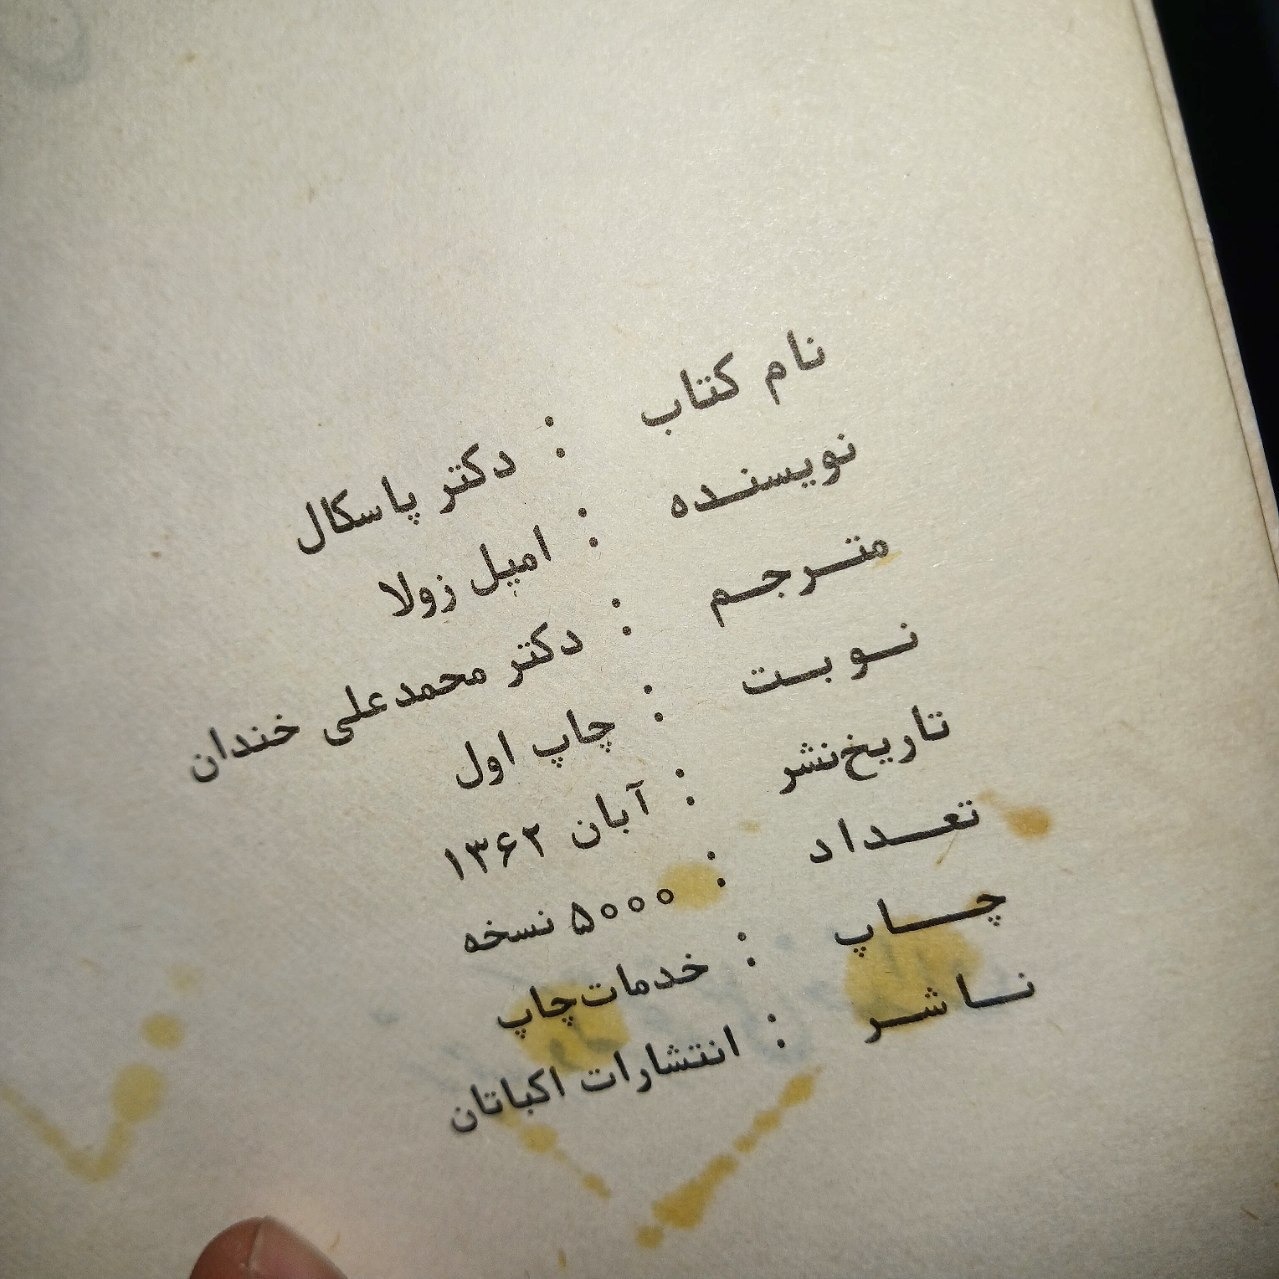 نام کتاب : دکتر پاسکال
نویسنده : امیل زولا
مترجم : دکتر محمدعلی خندان
نوبت : چاپ اول
تاریخ‌نشر : آبان ۱۳۶۲
تعداد : ۵۰۰۰ نسخه
چاپ : خدمات‌چاپ
ناشر : انتشارات اکباتان